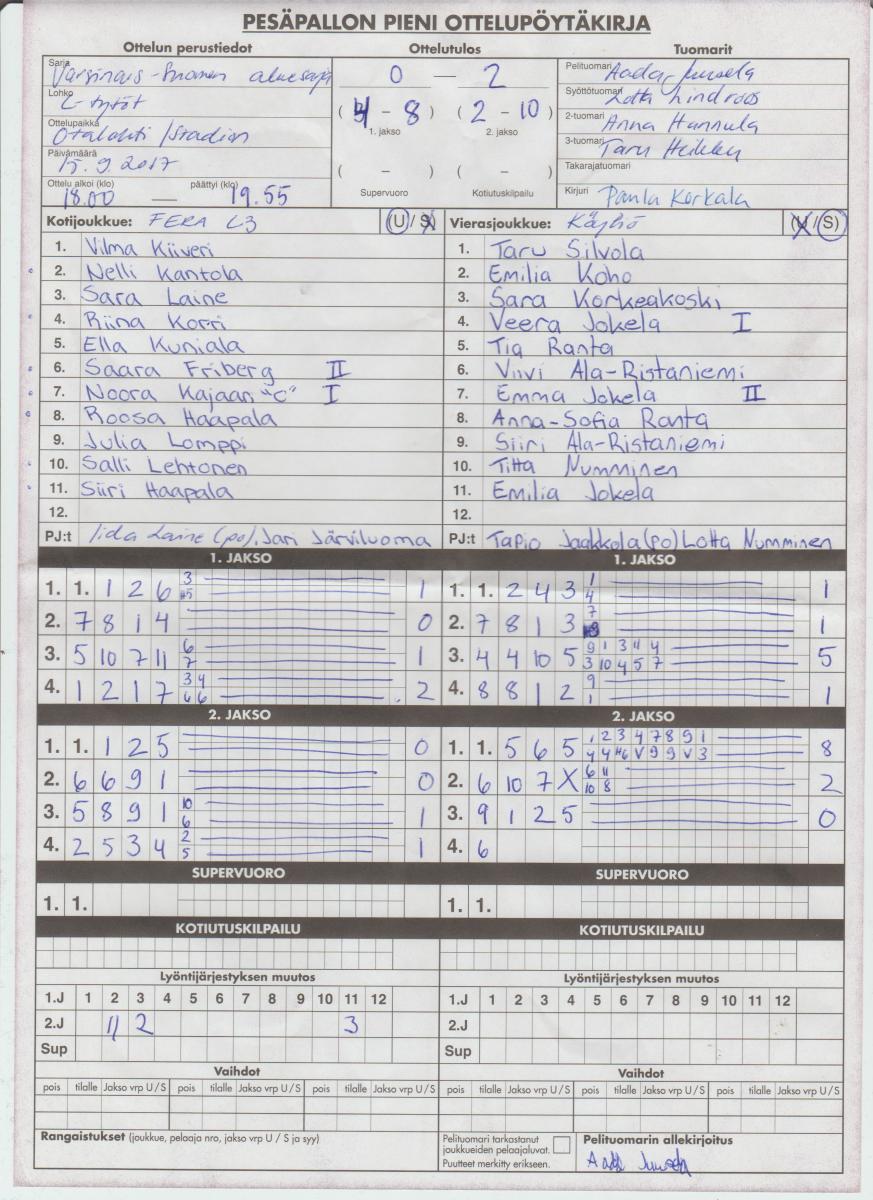 PESÄPALLON PIENI OTTELUPÖYTÄKIRJA
Ottelun perustiedot Ottelutulos Tuomarit
Sarja Varsinais-Suomen aluesarja
Lohko C-tytöt
Ottelupaikka Otalahti / Stadion
Päivämäärä 15.9.2017
Ottelu alkoi (klo) 18.00 — päättyi (klo) 19.55
0 — 2
( 4 - 8 ) ( 2 - 10 )
1. jakso 2. jakso
( - ) ( - )
Supervuoro Kotiutuskilpailu
Pelituomari Aada
Syöttötuomari Lotta Lindroos
2-tuomari Anna Hannula
3-tuomari Taru
Takarajatuomari
Kirjuri Paula Korkala
Kotijoukkue: FERA C3 U / S
1. Vilma Kiiveri
2. Nelli Kantola
3. Sara Laine
4. Riina Korri
5. Ella Kuniala
6. Saara Friberg II
7. Noora Kajaan "C" I
8. Roosa Haapala
9. Julia Lomppi
10. Salli Lehtonen
11. Siiri Haapala
12.
PJ:t Iida Laine (po), Jari Järviluoma
Vierasjoukkue: Käyhö (U / S)
1. Taru Silvola
2. Emilia Koho
3. Sara Korkeakoski
4. Veera Jokela I
5. Tia Ranta
6. Viivi Ala-Ristaniemi
7. Emma Jokela II
8. Anna-Sofia Ranta
9. Siiri Ala-Ristaniemi
10. Titta Numminen
11. Emilia Jokela
12.
PJ:t Tapio Jaakkola (po) Lotta Numminen
1. JAKSO
1. 1. 1 2 6 3 1
2. 7 8 1 4 0
3. 5 10 7 11 6 7 1
4. 1 2 1 7 3 4 6 6 2
2. JAKSO
1. 1. 1 2 5 0
2. 6 6 9 1 0
3. 5 8 9 1 10 6 1
4. 2 5 3 4 2 5 1
SUPERVUORO
1. 1.
KOTIUTUSKILPAILU
Lyöntijärjestyksen muutos
1.J 1 2 3 4 5 6 7 8 9 10 11 12
2.J 11 2 3
Sup
Vaihdot
pois tilalle Jakso vrp U / S pois tilalle Jakso vrp U / S pois tilalle Jakso vrp U / S
1. JAKSO
1. 1. 2 4 3 1 4 1
2. 7 8 1 3 7 1
3. 4 4 10 5 9 1 3 11 4 3 10 4 5 7 5
4. 8 8 1 2 9 1 1
2. JAKSO
1. 1. 5 6 5 1 2 3 4 7 8 9 1 4 4 #6 V 9 9 V 3 8
2. 6 10 7 X 6 11 10 8 2
3. 9 1 2 5 0
4. 6
SUPERVUORO
1. 1.
KOTIUTUSKILPAILU
Lyöntijärjestyksen muutos
1.J 1 2 3 4 5 6 7 8 9 10 11 12
2.J
Sup
Vaihdot
pois tilalle Jakso vrp U / S pois tilalle Jakso vrp U / S pois tilalle Jakso vrp U / S
Rangaistukset (joukkue, pelaaja nro, jakso vrp U / S ja syy)
Pelituomari tarkastanut
joukkueiden pelaajaluvat.
Puutteet merkitty erikseen.
Pelituomarin allekirjoitus